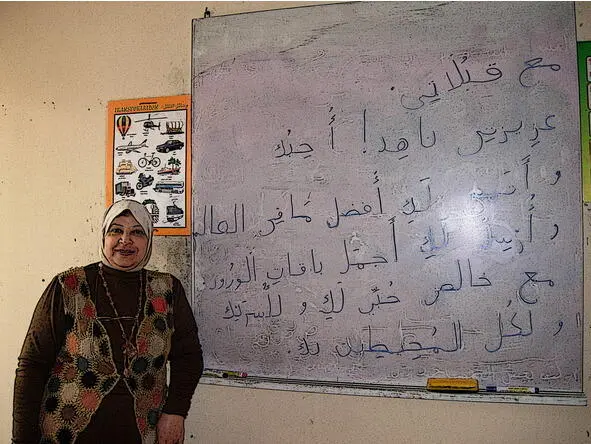 TRANSPORTATION
مع قبُلاتي.
عزيزتي ناهِد! أُحِبُك
و أتمنى لَكِ أفضل مَافي العالم
و أُرسِلُ لَكِ أجمل باقات الورُود.
مع خالص حُبّي لَكِ و لأسرتك
و لكُل المُحِيطين بك.